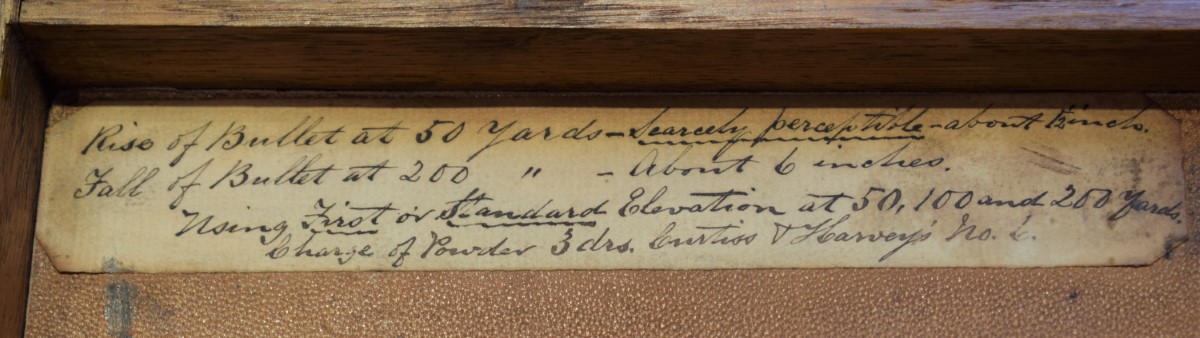 Rise of Bullet at 50 Yards - Scarcely perceptible - about ½ inch.
Fall of Bullet at 200 " - About 6 inches.
Using First or Standard Elevation at 50, 100 and 200 Yards.
Charge of Powder 3 drs. Curtiss & Harvey's No. 6.